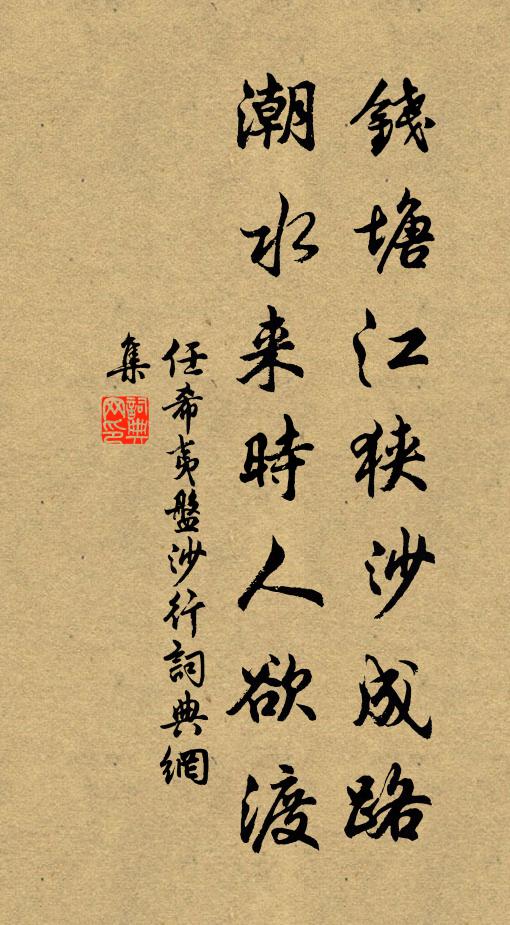 錢塘江狹沙成路
潮水来時人欲渡
任希夷盤沙行詞典網
集
詞典
网印